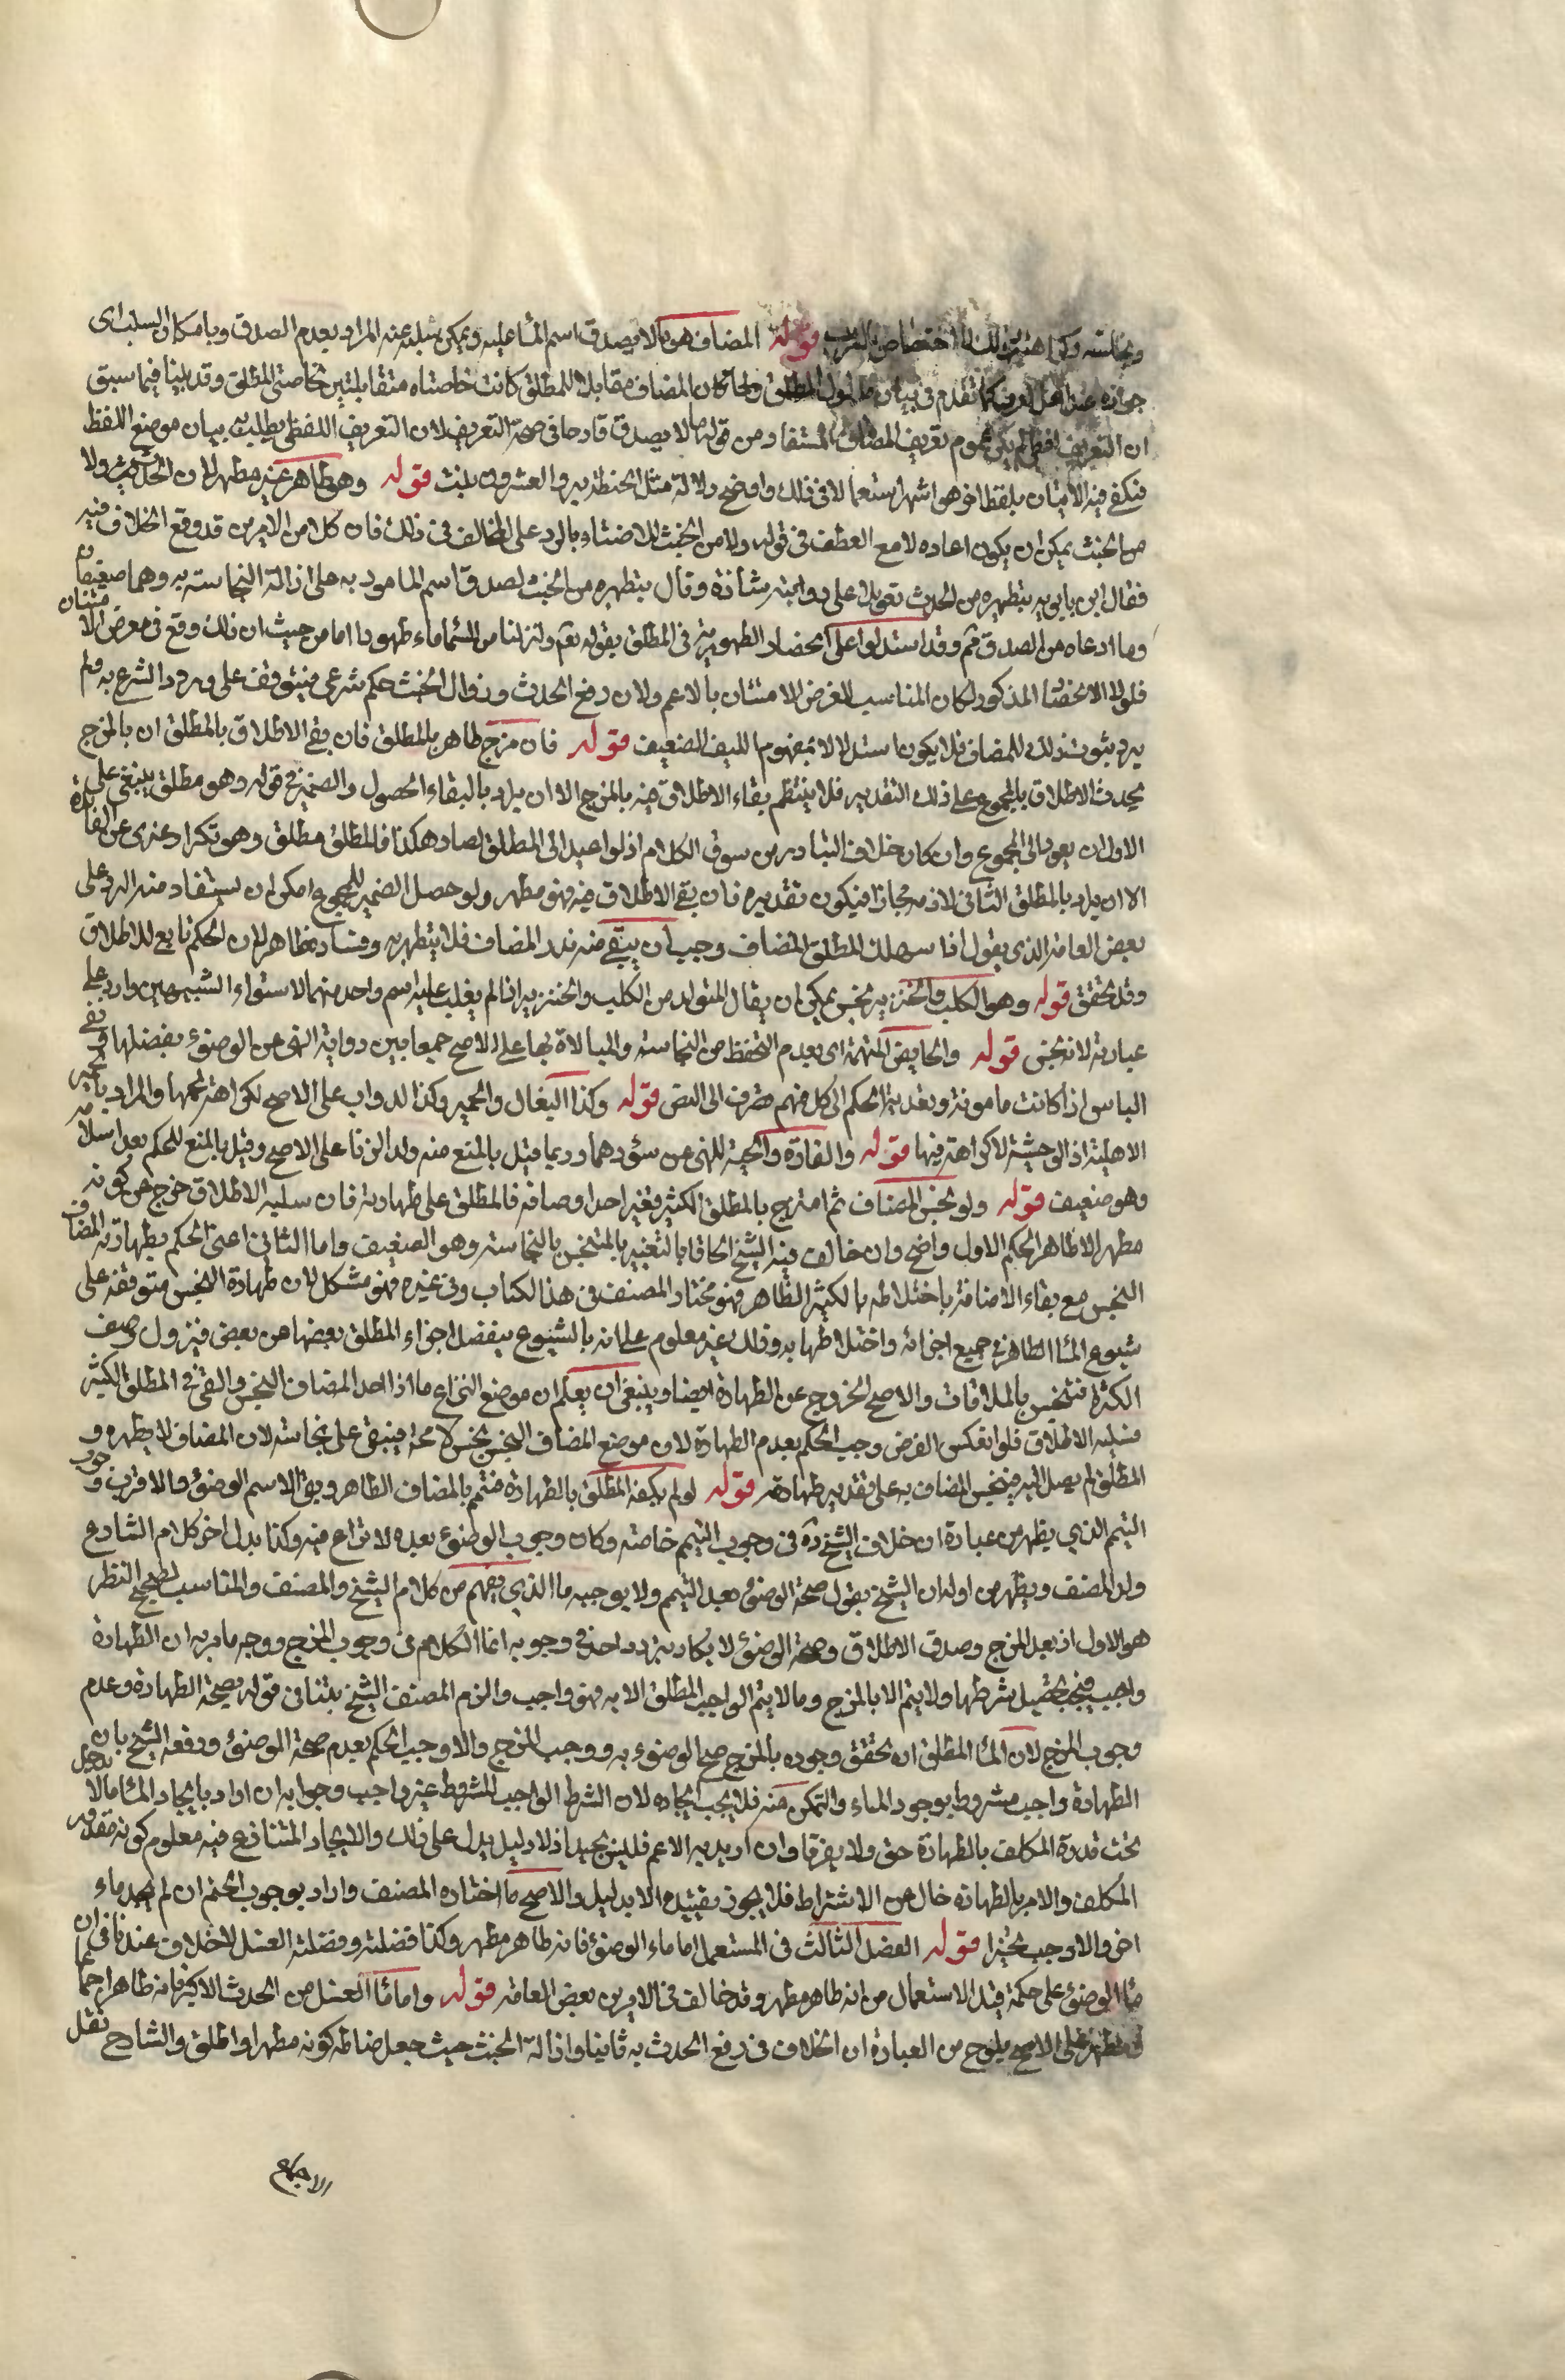 قوله المضاف هو ما لا يصدق اسم الماء عليه ويمكن سلبه عنه المراد بعدم الصدق وبامكان السلب اى
جوازه عند اهل العرف كما تقدم فى بيان مدلول المطلق ولما كان المضاف مقابلا للمطلق كانت خاصتاه متقابلتين لخاصتى المطلق وقد بينا فيما سبق
ان التعريف لفظى عموم تعريف المضاف المستفاد من قولنا ما لا يصدق قادحا فى صحة التعريف لان التعريف اللفظى يطلب به بيان موضع اللفظ
فيكفى فيه الاتيان بلفظ اخر هو اشهر استعمالا فى ذلك واوضح دلالة مثل الحنطة بر والعشرون نبت قوله وهو طاهر غير مطهر لا من الحدث ولا
من الخبث يمكن ان يكون اعاده لا مع العطف فى قوله ولا من الخبث للاعتناء بالرد على المخالف فى ذلك فان كلا من الامرين قد وقع الخلاف فيه
فقال ابن بابويه بتطهيره من الحدث تعويلا على رواية شاذة وقال بتطهيره من الخبث لصدق اسم المامور به على ازالة النجاسة به وهما ضعيفان
وما ادعاه من الصدق ثم وقد استدلوا على انحصار الطهورية فى المطلق بقوله تع وانزلنا من السماء ماء طهورا اما من حيث ان ذلك وقع فى معرض الامتنان
فلولا الانحصار المذكور لكان المناسب للغرض الامتنان بالاعم ولان رفع الحدث وزوال الخبث حكم شرعى فيتوقف على ورود الشرع به ولم
يرد بثبوت ذلك للمضاف فلا يكون استدلالا بمفهوم اللقب الضعيف قوله فان مزج طاهره بالمطلق فان بقى الاطلاق بالمطلق ان بالمزج
يحدث الاطلاق بالمجموع على ذلك التقدير فلا ينتظم بقاء الاطلاق فيه بالمزج الا ان يراد بالبقاء الحصول والضمير فى قوله وهو مطلق ينبغى على
الاول ان يعود الى المجموع وان كان خلاف التبادر من سوق الكلام اذ لو اعيد الى المطلق لصار هكذا فالمطلق مطلق وهو تكرار عرى عن الفائدة
الا ان يراد بالمطلق الثانى لازمه مجازا فيكون تقديره فان بقى الاطلاق فيه فهو مطهر ولو حصل الضمير للمجموع امكن ان يستفاد منه الرد على
بعض العامة الذى يقول اذا استهلك المطلق المضاف وجب ان يبقى منه بقدر المضاف فلا يتطهر به وفساده ظاهر لان الحكم تابع للاطلاق
وقد تحقق قوله وهو الكلب والخنزير نجس يمكن ان يقال المتولد من الكلب والخنزير اذا لم يغلب عليه اسم واحد منهما لاستواء الشبهين وارد على
عبارته لانه نجس قوله والحايض المتهمة اى بعدم التحفظ من النجاسة والمبالاة بها على الاصح جمعا بين رواية النهى عن الوضوء بفضلها ونفى
الباس اذا كانت مامونة وتعدية الحكم الى كل متهم تصرف الى النص قوله وكذا البغال والحمير وكذا الدواب على الاصح لكراهة لحمها والمراد بالحمير
الاهلية اذ الوحشية لا كراهة فيها قوله والفارة والحية للنهى عن سؤرهما وربما قيل بالمنع منه ولد الزنا على الاصح وقيل بالمنع للحكم بعدم اسلامه
وهو ضعيف قوله ولو نجس المضاف ثم امتزج بالمطلق الكثير فغير احد اوصافه فالمطلق على طهارته فان سلبه الاطلاق خرج عن كونه
مطهرا لا طاهرا الحكم الاول واضح وان خالف فيه الشيخ الحاقا بالتغير بالمتنجس بالنجاسة وهو ضعيف واما الثانى اعنى الحكم بطهارة المضاف
النجس مع بقاء الاضافة باختلاطه بالكثير الطاهر فهو مختار المصنف فى هذا الكتاب وفى غيره فهو مشكل لان طهارة النجس متوقفة على
شيوع الماء الطاهر فى جميع اجزائه واختلاطها به وذلك غير معلوم على انه بالشيوع ينفصل اجزاء المطلق بعضها من بعض فيزول وصف
الكثرة فتنجس بالملاقات والاصح الخروج عن الطهارة ايضا وينبغى ان يعلم ان موضع النزاع ما اذا احد المضاف النجس والقى فى المطلق الكثير
فسلبه الاطلاق فلو انعكس الفرض وجب الحكم بعدم الطهارة لان موضع المضاف النجس نجس لا محة فيبقى على نجاسته لان المضاف لا يطهره و
المطلق لم يصل اليه فينجس المضاف به على تقدير طهارته قوله لو لم يكفه المطلق بالطهارة فتمم بالمضاف الطاهر وبقى الاسم الوضوء والاقرب وجوب
التيمم الذى يظهر من عبارة ان خلاف الشيخ ره فى وجوب التيمم خاصة وكان وجوب الوضوء بعده لا نزاع فيه وكذا يدل اخر كلام الشارح
ولد المصنف ويظهر من اوله ان الشيخ يقول صحة الوضوء بعد التيمم ولا يوجبه ما الذى يفهم من كلام الشيخ والمصنف والمناسب لصحيح النظر
هو الاول اذ بعد المزج وصدق الاطلاق وصحة الوضوء لا يكاد يتردد احد فى وجوبه انما الكلام فى وجوب المزج ووجه ما مر به ان الطهارة
واجب فيجب تحصيل شرطها ولا يتم الا بالمزج وما لا يتم الواجب المطلق الا به فهو واجب والزم المصنف الشيخ بتنافى قوليه بصحة الطهارة وعدم
وجوب المزج لان الماء المطلق ان تحقق وجوده بالمزج صح الوضوء به ووجب المزج والا وجب الحكم بعدم صحة الوضوء ودفعه الشيخ بان
الطهارة واجب مشروط بوجود الماء والتمكن منه فلا يجب ايجاده لان الشرط الواجب المشروط غير واجب وجوابه ان اراد بايجاد الماء ما لا يدخل
تحت قدرة المكلف بالطهارة حق ولا يضرنا وان اريد به الاعم فليس بجيد اذ لا دليل يدل على ذلك والايجاد المتنازع فيه معلوم كونه مقدور
المكلف والامر بالطهارة خال من الاشتراط فلا يجوز تقييده الا بدليل والاصح ما اختاره المصنف واراد بوجوب التيمم ان لم يجد ماء
اخر والا وجب تخيرا قوله الفصل الثالث فى المستعمل اما ماء الوضوء فانه طاهر مطهر وكذا فضلته وفضلة الغسل لا خلاف عندنا فى ان
ماء الوضوء على حكمه قبل الاستعمال من انه طاهر مطهر وقد خالف فى الامرين بعض العامة قوله واما ماء الغسل من الحدث الاكبر فانه طاهر اجماعا
ومطهر على الاصح يلوح من العبارة ان الخلاف فى رفع الحدث به ثانيا وازالة الخبث حيث جعل ضابطه كونه مطهرا واطلق والشارح نقل
الاجماع